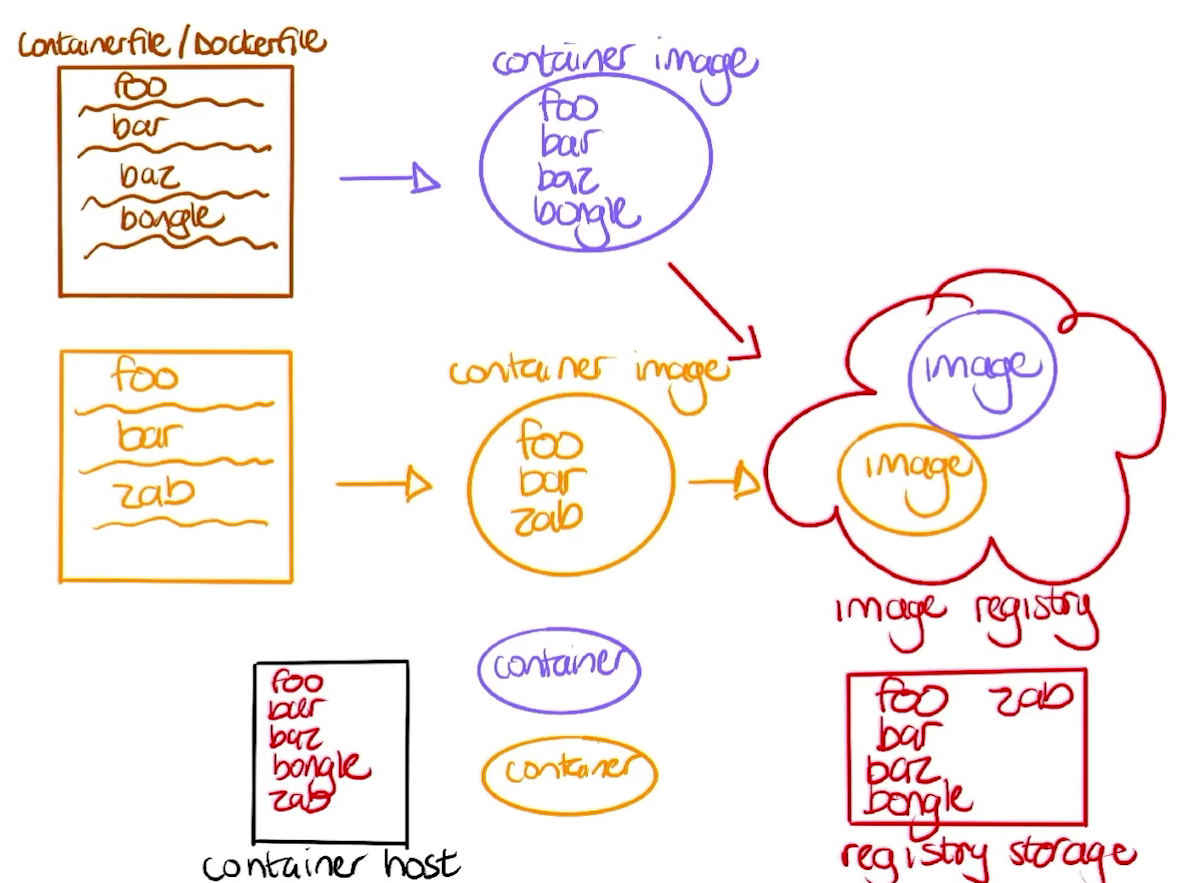 Containerfile/Dockerfile
foo
bar
baz
bongle
container image
foo
bar
baz
bongle
foo
bar
zab
container image
foo
bar
zab
image
image
image registry
foo
bar
baz
bongle
zab
container host
container
container
foo zab
bar
baz
bongle
registry storage